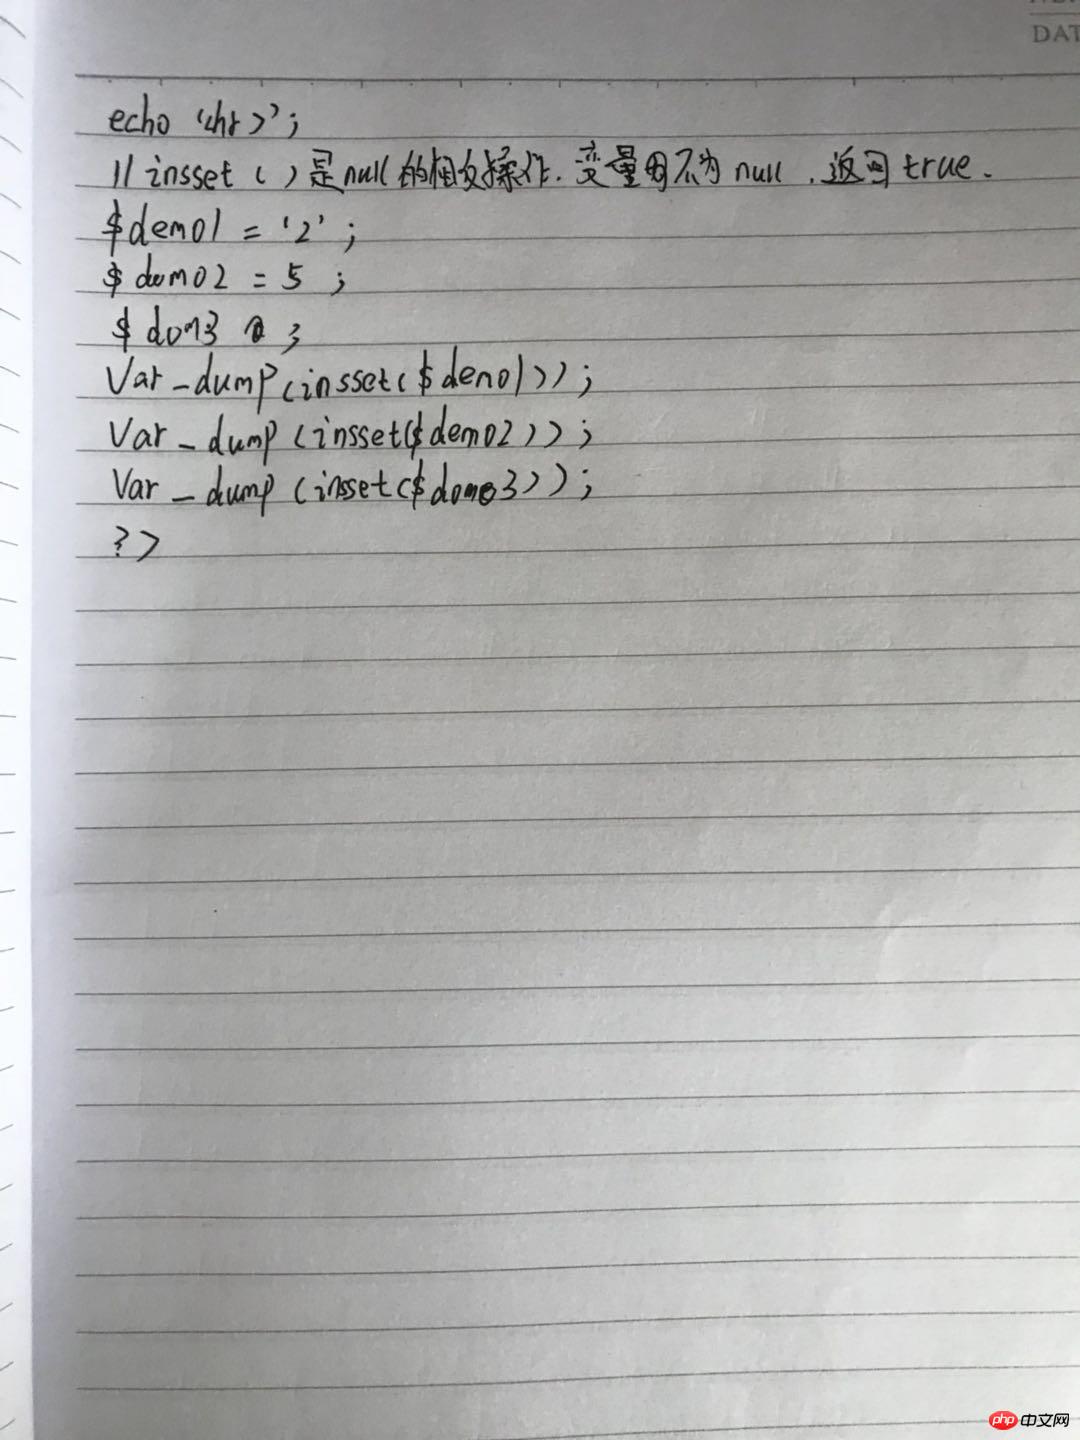 DAT
echo '<hr>';
// insset ( ) 是null的相反操作. 变量不为 null . 返回 true .
$demo1 = '2' ;
$ demo2 = 5 ;
$ dom3 ;
Var_dump(insset($demo1));
Var_dump (insset($demo2));
Var_dump (insset($domo3));
?>
php 中文网